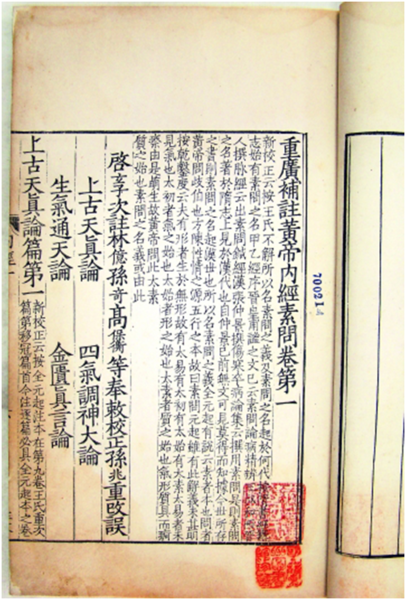 重廣補註黃帝內經素問卷第一
新校正云按王氏不解所以名素問之義及素問之名起於何代按隋書經籍
志始有素問之名甲乙經序晉皇甫謐之文已云素問論病精辨
人撰脉經云出素問鍼經漢張仲景撰傷寒卒病論集云撰用素問是則素問
之名著於隋志上見於漢代也自仲景已前無文可見莫得而知據今世所存
之書則素問之名起漢世也所以名素問之義全元起有說云素者本也問者
黃帝問岐伯也方陳性情之源五行之本故曰素問元起雖有此解義未甚明
按乾鑿度云夫有形者生於無形故有太易有太初有太始有太素太易者未
見氣也太初者氣之始也太始者形之始也太素者質之始也氣形質具而痾
瘵由是萌生故黃帝問此太素
質之始也素問之名義或由此
啓玄子次註林億孫奇高保衡等奉敕校正孫兆重改誤
上古天真論　四氣調神大論
生氣通天論　金匱真言論
上古天真論篇第一
新校正云按全元起注本在第九卷王氏重次
篇第移冠篇首今注逐篇必具全元起本之卷
700214